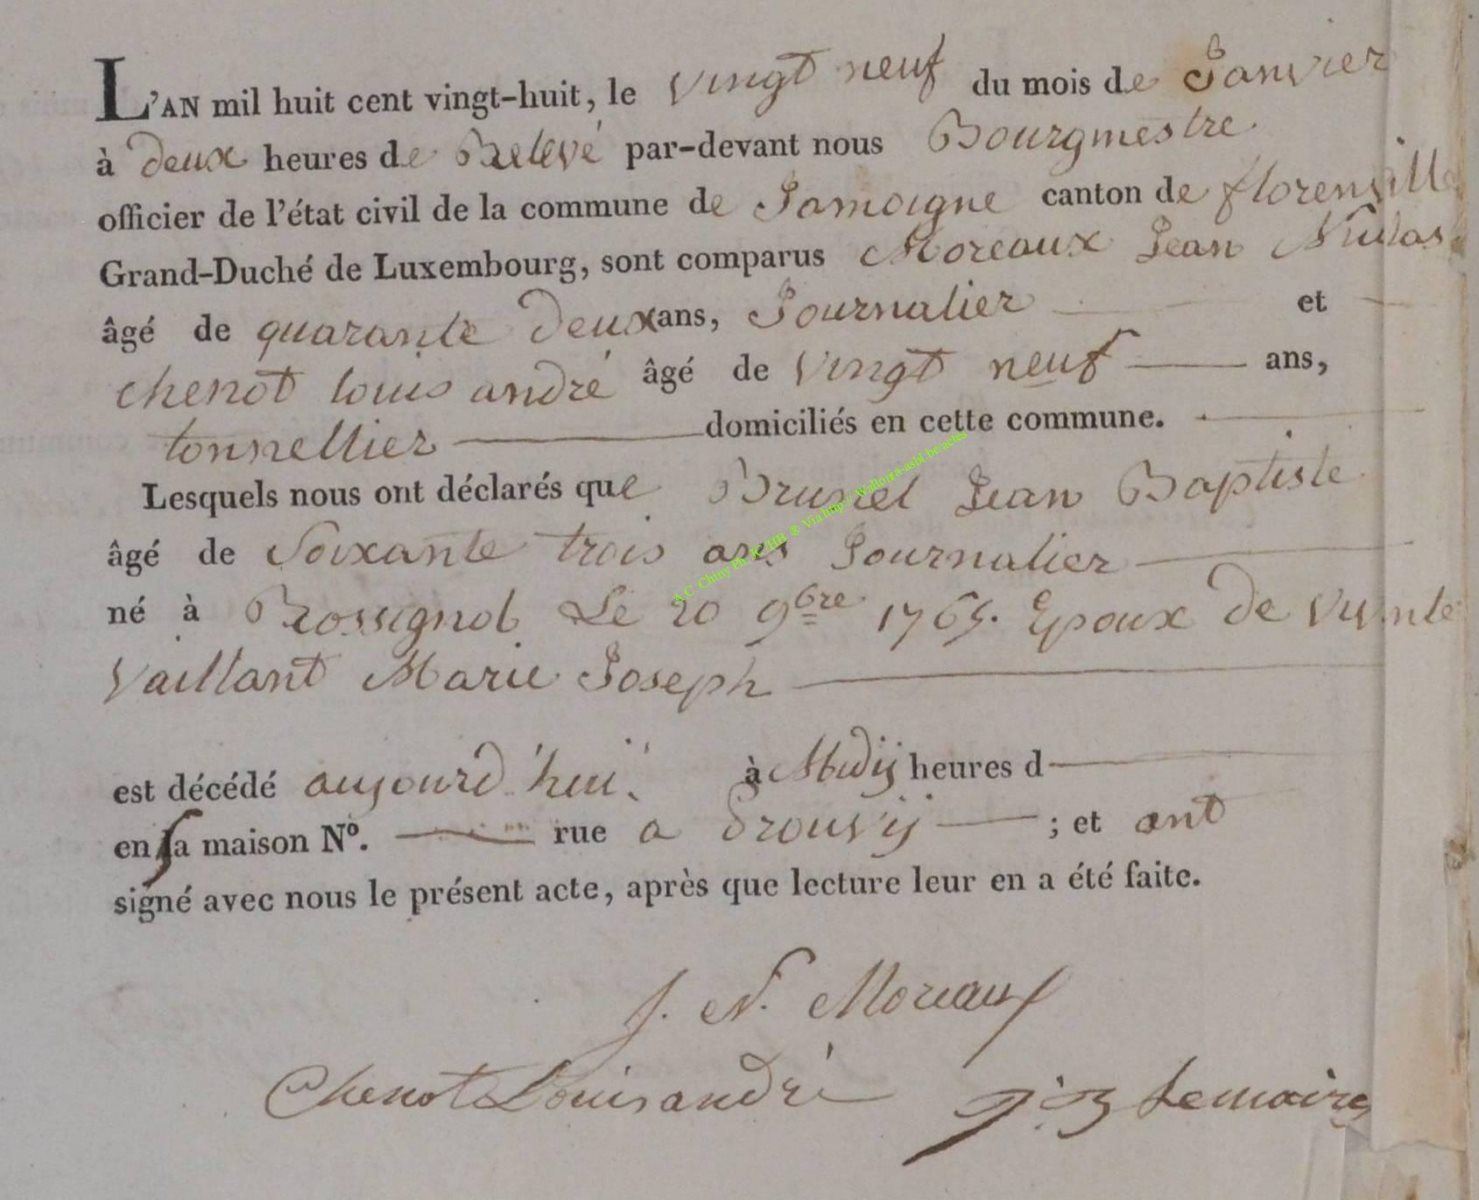 L'AN mil huit cent vingt-huit, le vingt neuf du mois de Janvier
à deux heures de Relevé par-devant nous Bourgmestre
officier de l'état civil de la commune de Jamoigne canton de florenville
Grand-Duché de Luxembourg, sont comparus Moreaux Jean Nicolas
âgé de quarante deux ans, Journalier et
chenot louis andré âgé de vingt neuf ans,
tonnellier domiciliés en cette commune.
Lesquels nous ont déclarés que Brunel Jean Baptiste
âgé de Soixante trois ans Journalier
né à Rossignol Le 20 9bre 1765. Epoux de vivante
Vaillant Marie Joseph
est décédé aujourd'hui à Midij heures d
en sa maison N°. rue a Prouvij ; et ont
signé avec nous le présent acte, après que lecture leur en a été faite.
J. N. Moreaux
Chenot Louis andré Lemaire